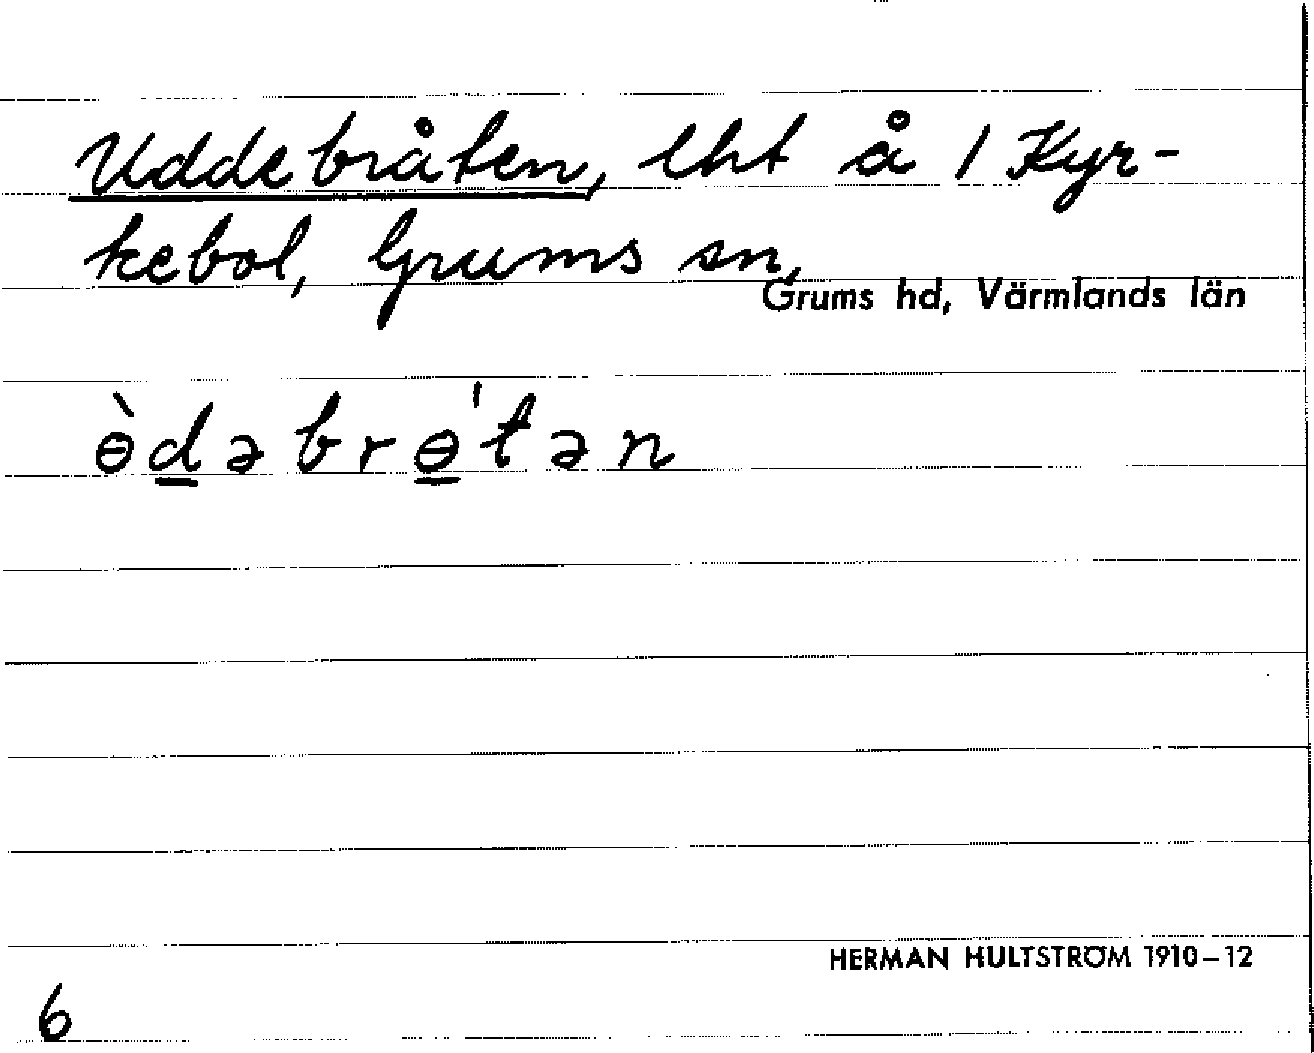 Uddebråten, lht å 1 Kyr-
kebol, Grums sn,
Grums hd, Värmlands län
ɵ̀d̲əbrɵ̲'tən
HERMAN HULTSTRÖM 1910–12
6